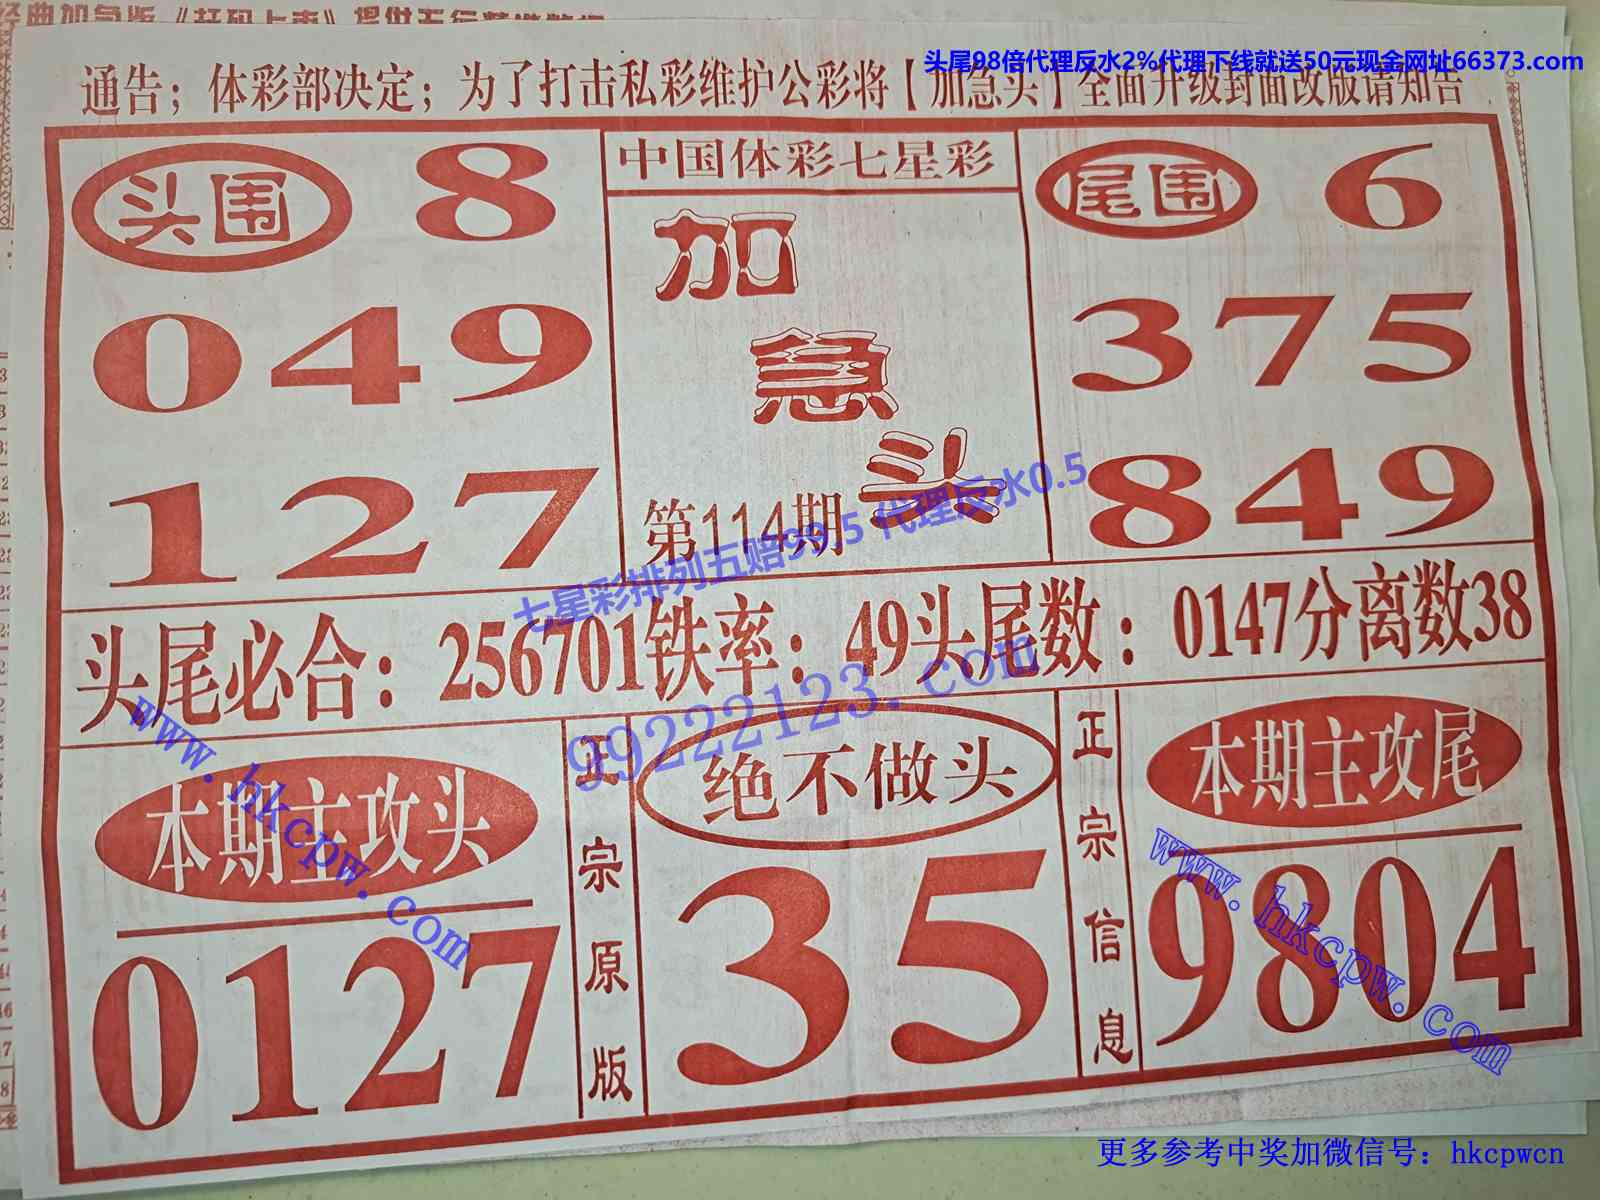 经典加急版《打码上市》提供五行
头尾98倍代理反水2%代理下线就送50元现金网址66373.com
通告；体彩部决定；为了打击私彩维护公彩将【加急头】全面升级封面改版请知告
头围 8
049
127
中国体彩七星彩
加
急
头
第114期
尾围 6
375
849
七星彩排列五赔99.5 代理反水0.5
头尾必合：256701铁率：49头尾数：0147分离数38
99222123.com
www.hkcpw.com
本期主攻头
0127
正宗原版
绝不做头
35
正宗信息
本期主攻尾
9804
www.hkcpw.com
更多参考中奖加微信号：hkcpwcn